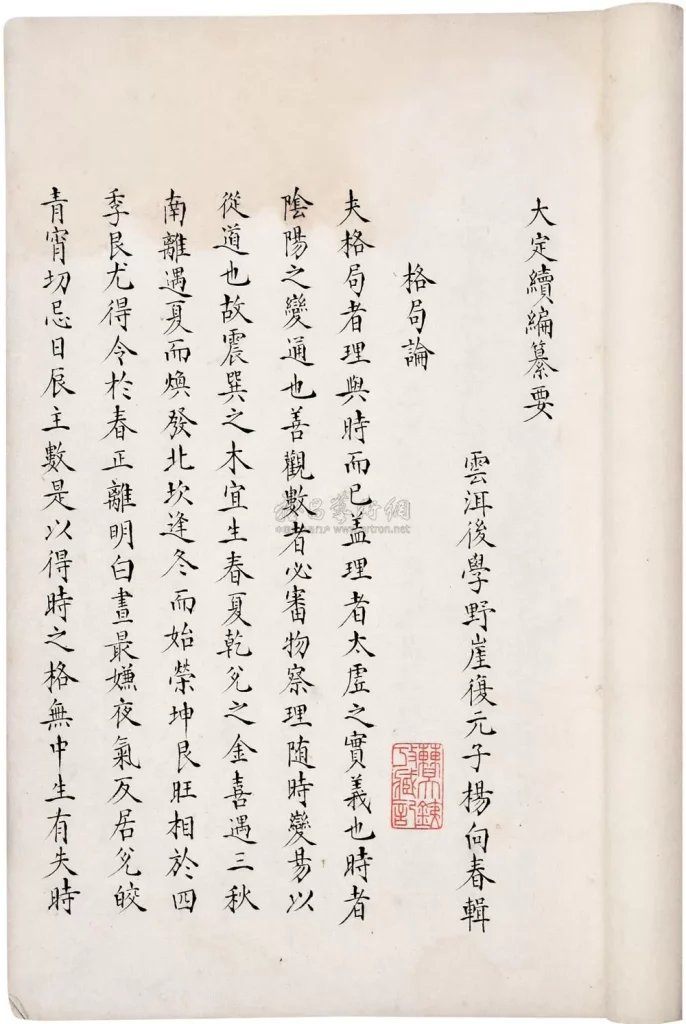 大定續編纂要
雲洱後學野崖復元子楊向春輯
格局論
夫格局者理與時而已盖理者太虛之實義也時者
陰陽之變通也善觀數者必審物察理随時變昜以
從道也故震巽之木宜生春夏乾兊之金喜遇三秋
南離遇夏而煥發北坎逢冬而始榮坤艮旺相於四
季艮尤得令於春正離明白晝最嫌夜氣反居兊皎
青宵切忌日辰主數是以得時之格無中生有失時
artron.net